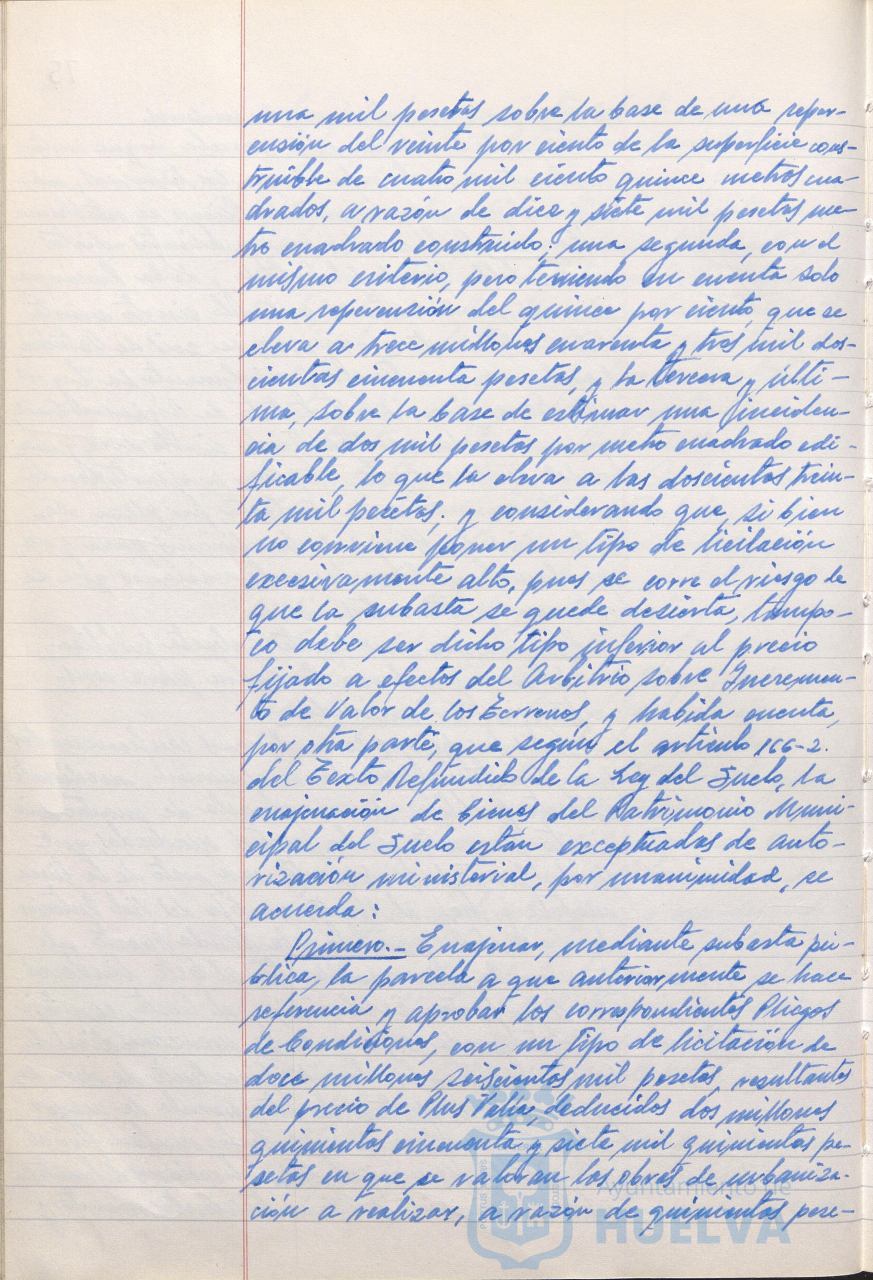 una mil pesetas sobre la base de una reper-
cusión del veinte por ciento de la superficie cons-
truible de cuatro mil ciento quince metros cua-
drados, a razón de diez y siete mil pesetas me-
tro cuadrado construido; una segunda, con el
mismo criterio, pero teniendo en cuenta solo
una repercusión del quince por ciento, que se
eleva a trece millones cuarenta y tres mil dos-
cientas cincuenta pesetas, y la tercera y últi-
ma, sobre la base de estimar una inciden-
cia de dos mil pesetas por metro cuadrado edi-
ficable, lo que la eleva a las doscientas trein-
ta mil pesetas; y considerando que, si bien
no conviene poner un tipo de licitación
excesivamente alto, pues se corre el riesgo de
que la subasta se quede desierta, tampo-
co debe ser dicho tipo inferior al precio
fijado a efectos del Arbitrio sobre Incremen-
to de Valor de los Terrenos, y habida cuenta,
por otra parte, que según el artículo 166-2.
del Texto Refundido de la Ley del Suelo, la
enajenación de bienes del Patrimonio Muni-
cipal del Suelo están exceptuadas de auto-
rización ministerial, por unanimidad, se
acuerda:
Primero.- Enajenar, mediante subasta pú-
blica, la parcela a que anteriormente se hace
referencia y aprobar los correspondientes Pliegos
de Condiciones, con un tipo de licitación de
doce millones seiscientas mil pesetas, resultantes
del precio de Plus Valia, deducidos dos millones
quinientas cincuenta y siete mil quinientas pe-
setas en que se valoran las obras de urbaniza-
ción a realizar, a razón de quinientas pese-
Ayuntamiento de
HUELVA